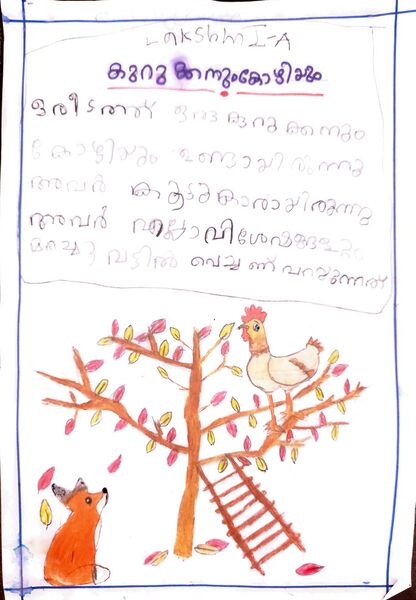 LAKSHMI I-A
കുറുക്കനും കോഴിയും
ഒരിടത്ത് ഒരു കുറുക്കനും
കോഴിയും ഉണ്ടായിരുന്നു
അവർ കൂട്ടുകാരായിരുന്നു
അവർ എല്ലാ വിശേഷങ്ങളും
വട്ടിൽ വെച്ചണ് പറയുന്നത്